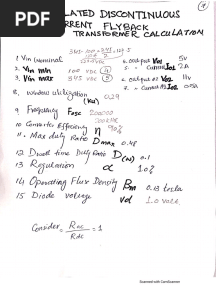 PDF
ISOLATED DISCONTINUOUS
CURRENT FLYBACK
TRANSFORMER CALCULATION
1. Vin nominal
2. Vin min 100 vdc
3. Vin max 345 vdc
4. output Vo1 5v
5. " Current Io1 2A
6. output Vo2 11v
7. " Current Io2
8. window utilization (Ku) 0.29
9. Frequency Fosc 200000
200KHz
10 Converter Efficiency η 90%
11. Max duty Ratio Dmax 0.48
12. Dwell time Duty Ratio D(w) 0.1
13 Regulation α 1.0%
14 Operating Flux Density Bm 0.13 tesla
15 Diode voltage Vd 1.0 volt
Consider, Rac/Rdc = 1
Scanned with CamScanner